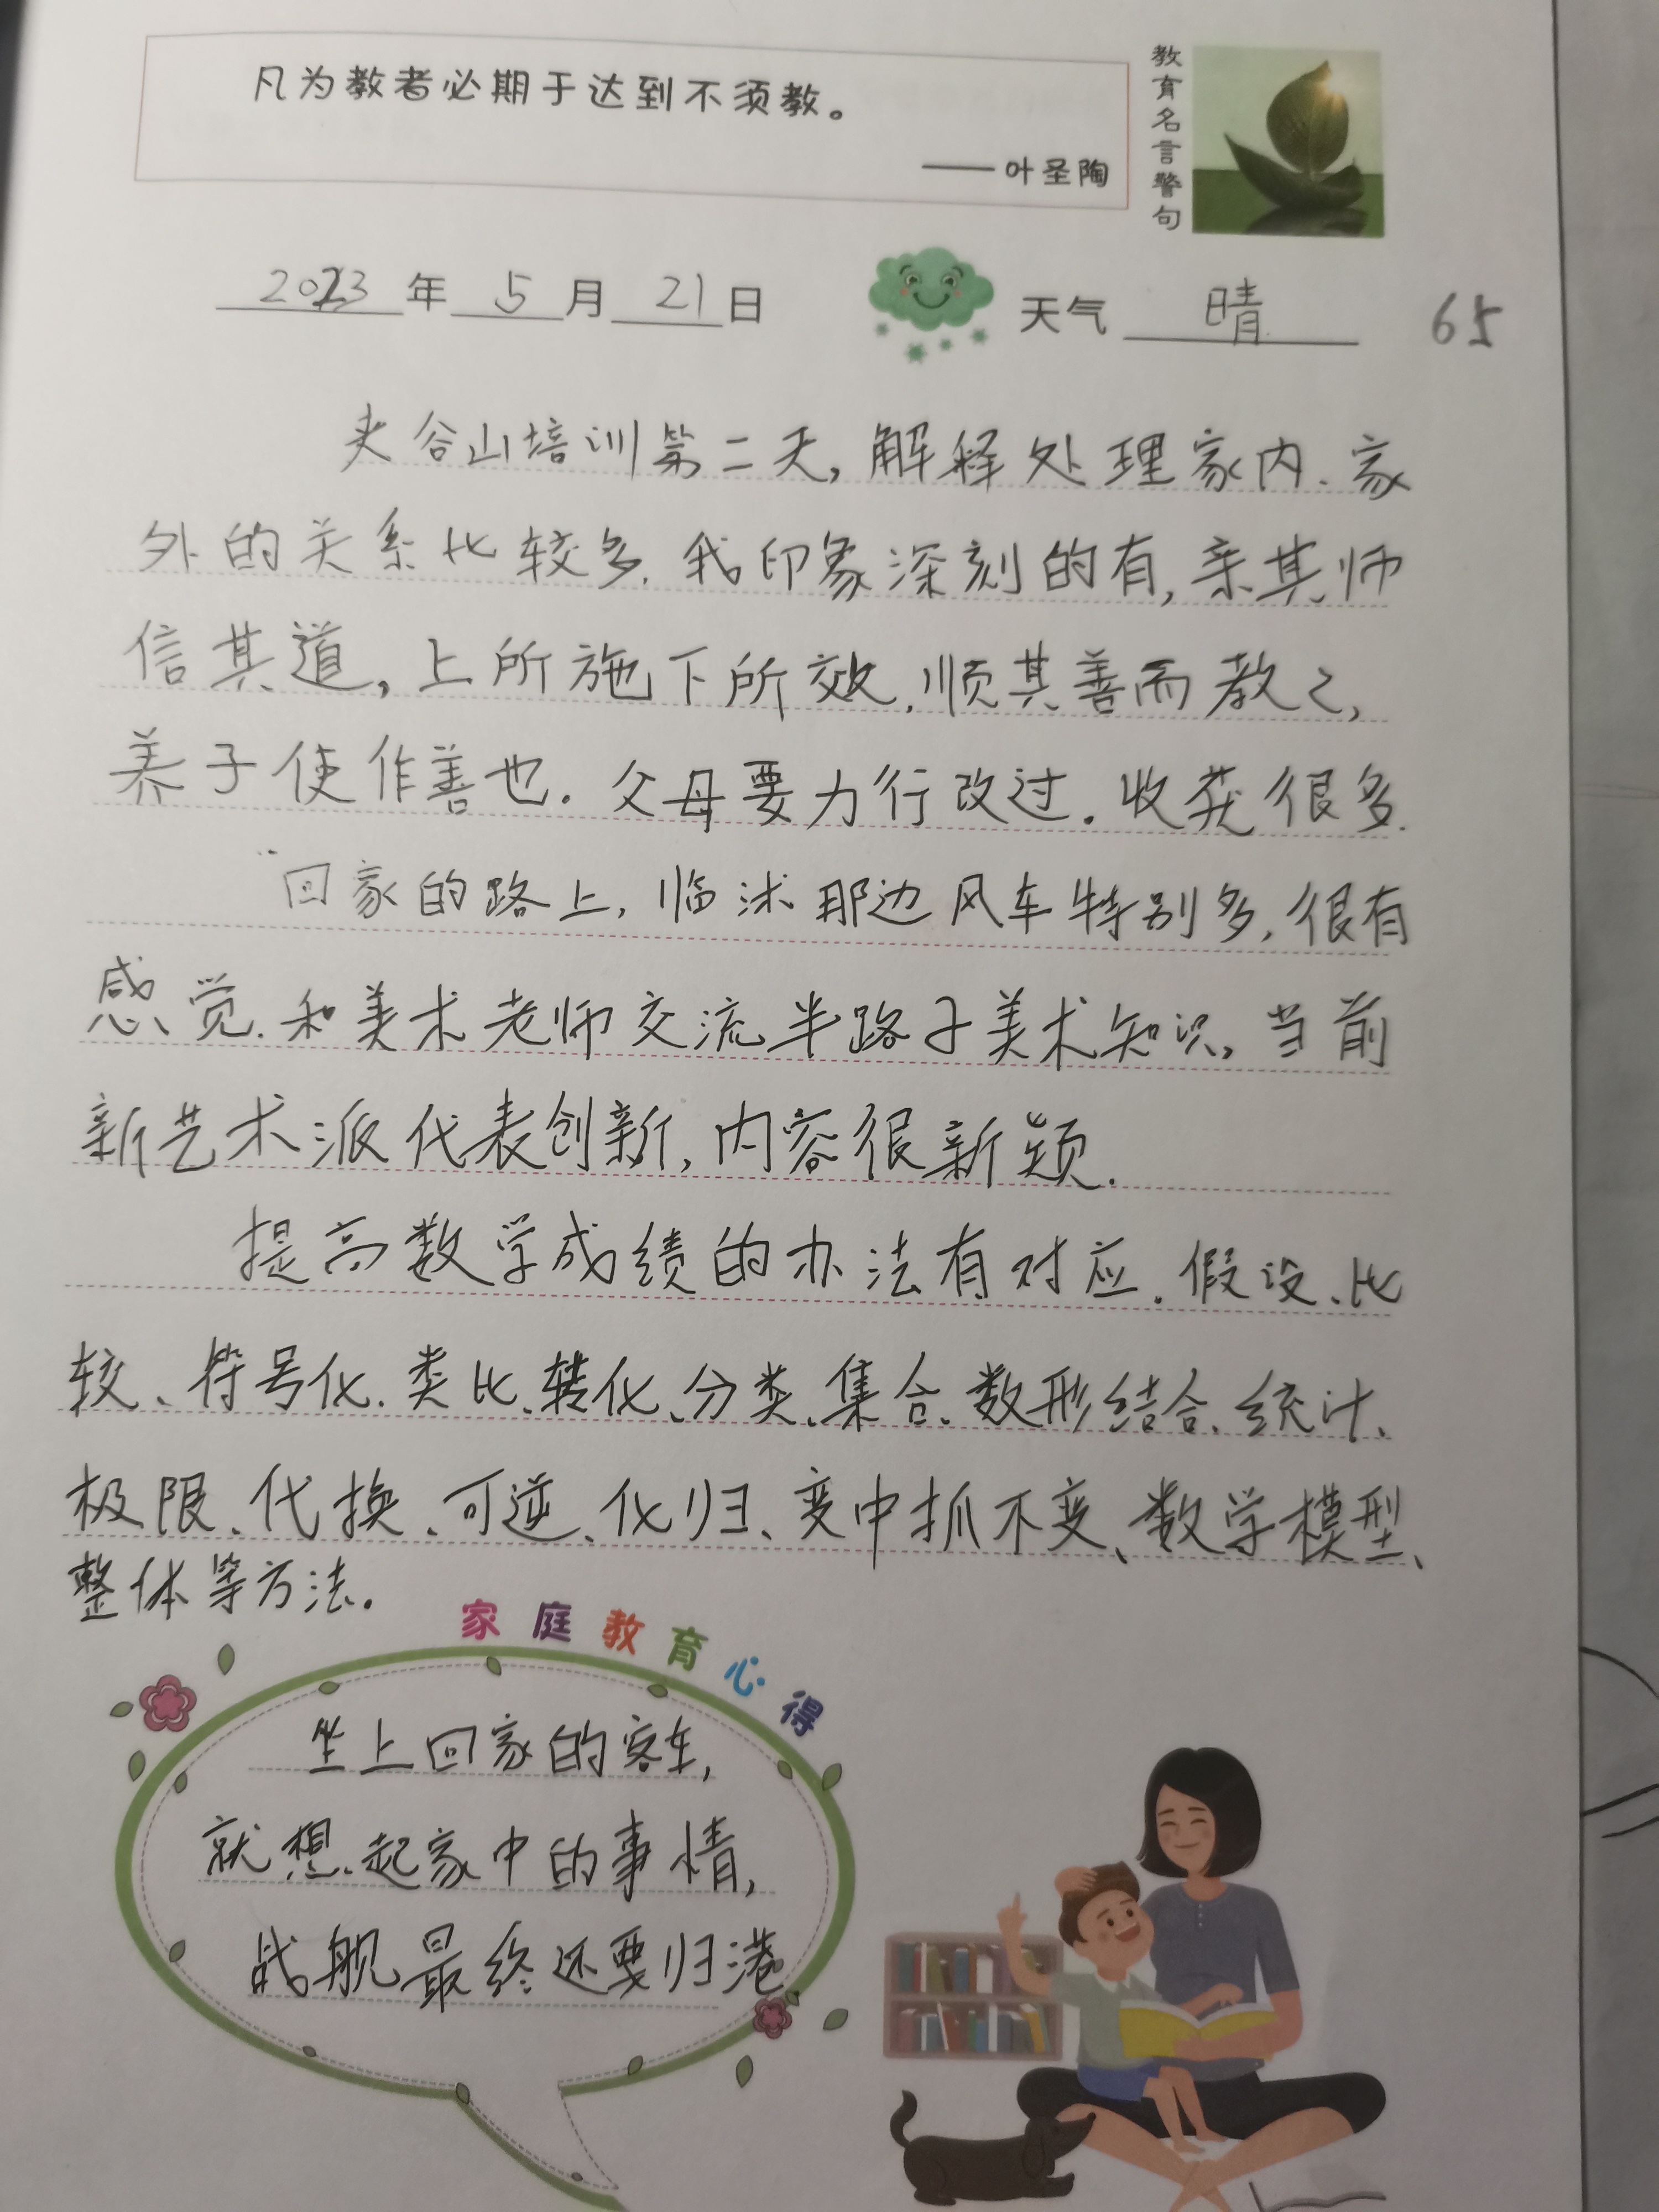 凡为教者必期于达到不须教。
——叶圣陶
教育名言警句
2023年5月21日 天气 晴 65
夹谷山培训第二天,解释处理家内、家
外的关系比较多.我印象深刻的有,亲其师
信其道,上所施下所效.顺其善而教之,
养子使作善也.父母要力行改过.收获很多.
回家的路上,临沭那边风车特别多,很有
感觉.和美术老师交流半路子美术知识,当前
新艺术派代表创新,内容很新颖.
提高数学成绩的办法有对应.假设、比
较、符号化.类比、转化、分类、集合、数形结合、统计、
极限、代换、可逆、化归、变中抓不变、数学模型、
整体等方法.
家庭教育心得
坐上回家的客车,
就想起家中的事情,
战舰最终还要归港.